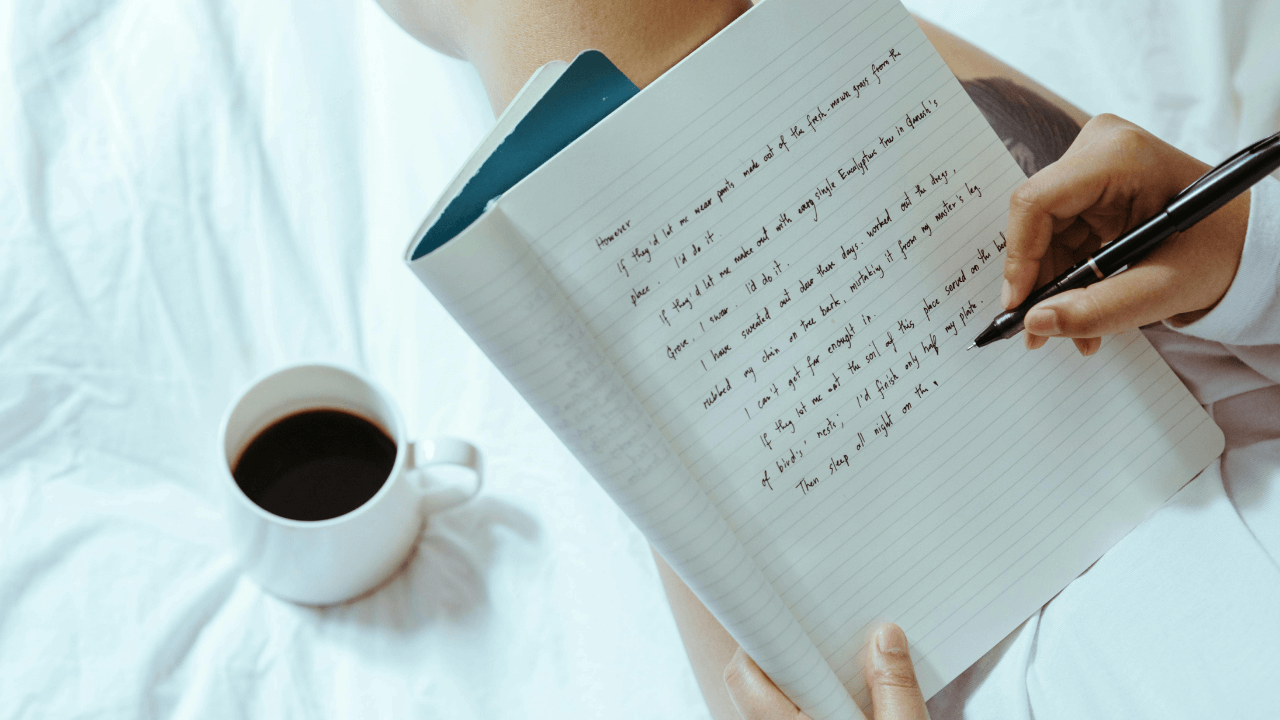 However
If they'd let me wear pants made out of the fresh-mown grass from the
place. I'd do it.
If they'd let me make out with every single Eucalyptus tree in Ganesh's
Grove, I swear. I'd do it.
I have sweated out dear these days. worked out the dregs,
rubbed my chin on tree bark, mistaking it from my master's leg.
I can't get far enought in.
If they let me eat the soil of this place served on the
of birds' nests; I'd finish only half my plate.
Then sleep all night on the